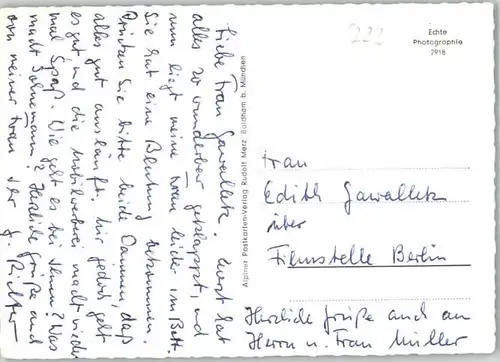 Liebe Frau Gawalletz. Erst hat
alles so wunderbar geklappt, und
nun liegt meine Frau leider im Bett.
Sie hat eine Blutung bekommen.
Drücken Sie bitte beide Daumen, daß
alles gut ausläuft. Mir jedoch geht
es gut und die macht wieder
mal Spaß. Wie geht es bei Ihnen? Was
macht Herzliche Grüße auch
von meiner Frau Ihr J. Richter
Alpiner Postkarten-Verlag Rudolf Merz Baldham b. München
222
Echte
Photographie
2918
Frau
Edith Gawalletz
über
Filmstelle Berlin
Herzliche Grüße auch an
Herrn u. Frau Müller